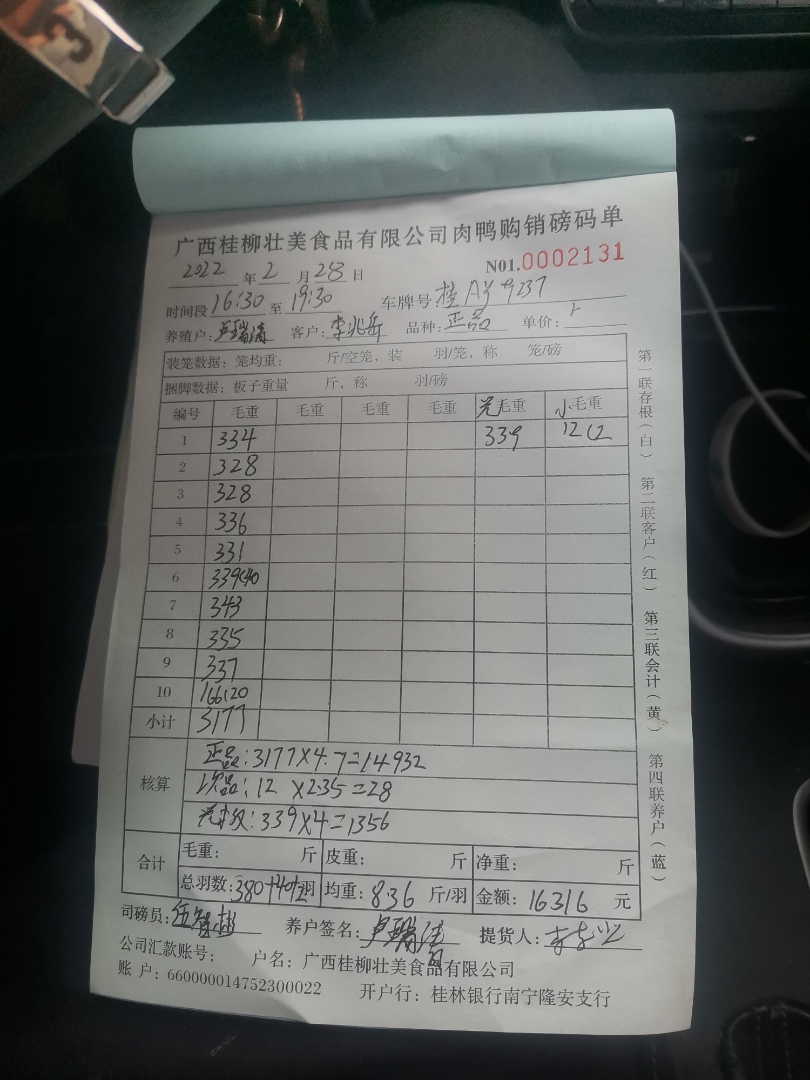 广西桂柳壮美食品有限公司肉鸭购销磅码单
2022 年 2 月 28 日 N01.0002131
时间段 16:30 至 19:30 车牌号 桂AY9237
养殖户: 卢瑞清 客户: 李兆岳 品种: 正品 单价:
装笼数据: 笼均重: 斤/空笼, 装 羽/笼, 称 笼/磅
捆脚数据: 板子重量 斤, 称 羽/磅
编号 毛重 毛重 毛重 毛重 毛重 小毛重
1 334 339 12
2 328
3 328
4 336
5 331
6 339(40
7 343
8 335
9 337
10 166(20
小计 3177
核算
正品: 3177×4.7=14932
次品: 12 ×2.35=28
339×4=1356
合计 毛重: 斤 皮重: 斤 净重: 斤
总羽数: 380+40 羽 均重: 8.36 斤/羽 金额: 16316 元
司磅员: 养户签名: 卢瑞清 提货人:
公司汇款账号: 户名: 广西桂柳壮美食品有限公司
账 户: 660000014752300022 开户行: 桂林银行南宁隆安支行
第一联存根(白) 第二联客户(红) 第三联会计(黄) 第四联养户(蓝)